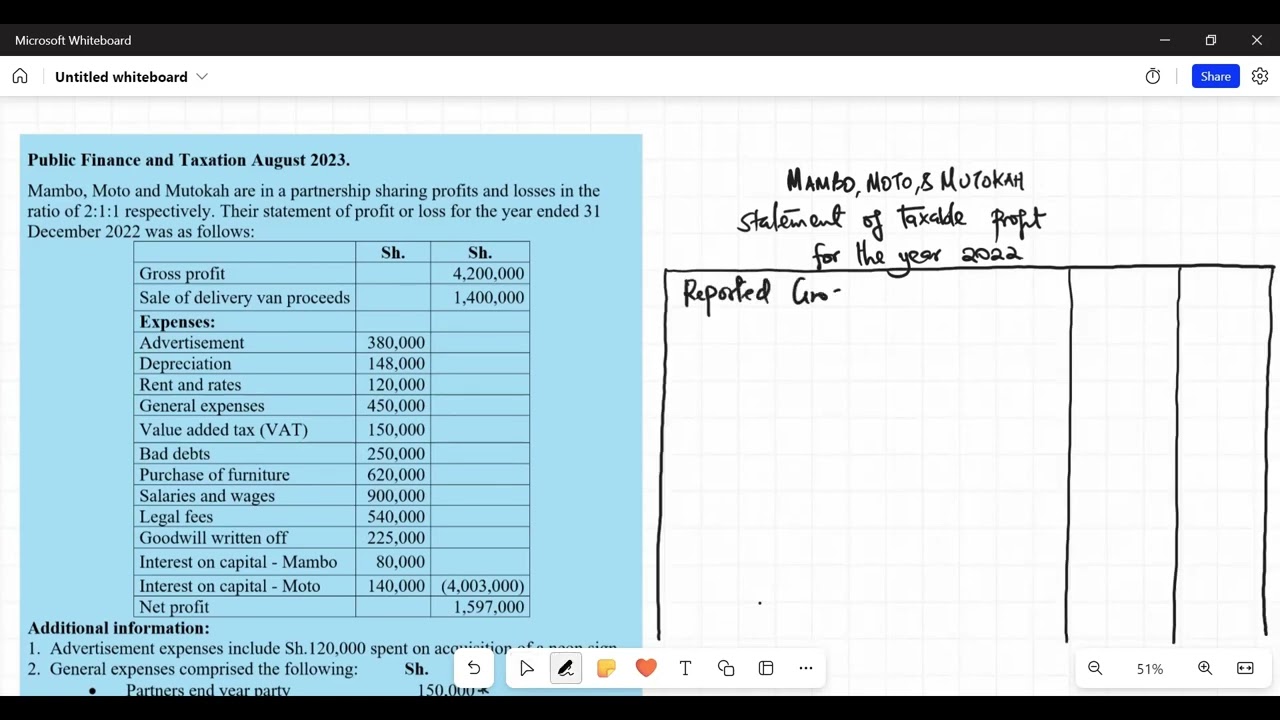 Microsoft Whiteboard
Untitled whiteboard
Share
Public Finance and Taxation August 2023.
Mambo, Moto and Mutokah are in a partnership sharing profits and losses in the
ratio of 2:1:1 respectively. Their statement of profit or loss for the year ended 31
December 2022 was as follows:
Sh. Sh.
Gross profit 4,200,000
Sale of delivery van proceeds 1,400,000
Expenses:
Advertisement 380,000
Depreciation 148,000
Rent and rates 120,000
General expenses 450,000
Value added tax (VAT) 150,000
Bad debts 250,000
Purchase of furniture 620,000
Salaries and wages 900,000
Legal fees 540,000
Goodwill written off 225,000
Interest on capital - Mambo 80,000
Interest on capital - Moto 140,000 (4,003,000)
Net profit 1,597,000
Additional information:
1. Advertisement expenses include Sh.120,000 spent on
2. General expenses comprised the following: Sh.
• Partners end year party 150,000
MAMBO, MOTO, & MUTOKAH
Statement of Taxable Profit
for the year 2022
Reported Gro
T
51%